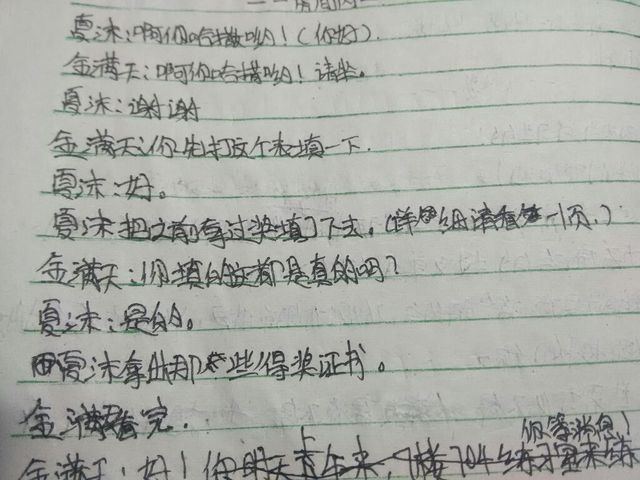 夏沫:啊伲哈撒哟!(你好).
金满天:啊伲哈撒哟!请坐。
夏沫:谢谢
金满天:你先把这个表填一下.
夏沫:好。
夏沫把之前拿过奖填了下去。(详细请看第一页.)
金满天:你填的这都是真的吗?
夏沫:是的。
夏沫拿出那些得奖证书。
金满天看完.
你等消息!
金满天:好!你明天上午来,7楼704练习室来练